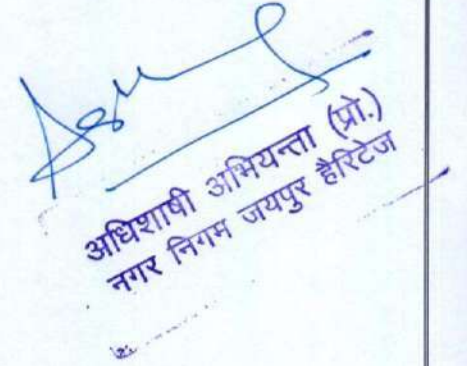 अधिशाषी अभियन्ता (प्रो.)
नगर निगम जयपुर हैरिटेज